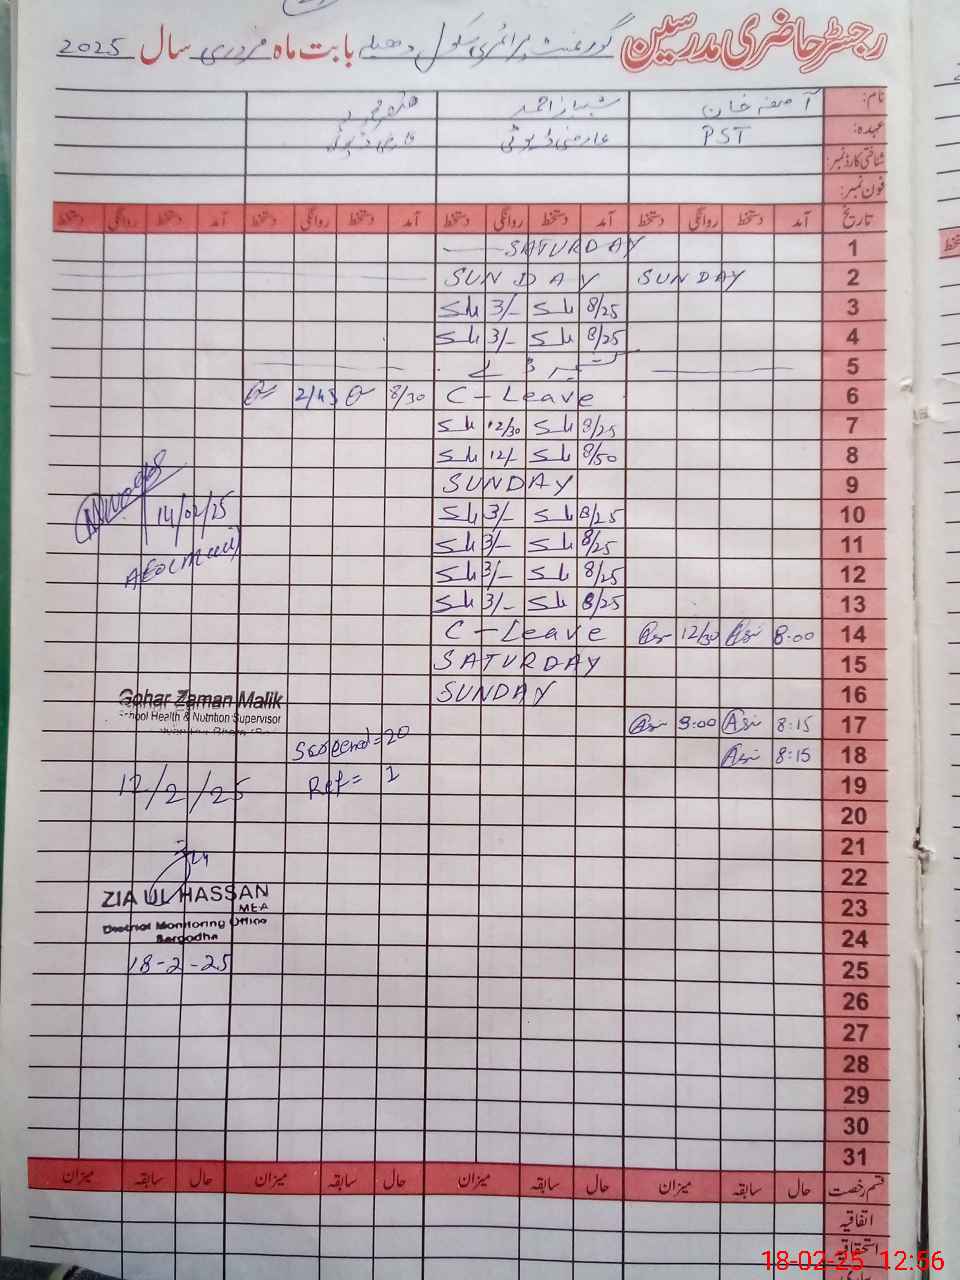 رجسٹر حاضری مدرسین گورنمنٹ پرائمری سکول بابت ماہ فروری سال 2025
نام: آصفہ خان شہباز احمد
عہدہ: PST عارضی ڈیوٹی عارضی ڈیوٹی
شناختی کارڈ نمبر:
فون نمبر:
تاریخ آمد دستخط روانگی دستخط آمد دستخط روانگی دستخط آمد دستخط روانگی دستخط آمد دستخط روانگی دستخط
1 SATURDAY
2 SUNDAY SUNDAY
3 8/25 3/-
4 8/25 3/-
5 کشمیر ڈے
6 C-Leave 8/30 2/45
7 8/25 12/30
8 8/50 12/-
9 SUNDAY
10 8/25 3/-
11 8/25 3/-
12 8/25 3/-
13 8/25 3/-
14 8:00 12/30 C-Leave
15 SATURDAY
16 SUNDAY
17 8:15 3:00
18 8:15
19
20
21
22
23
24
25
26
27
28
29
30
31
14/02/25
Gohar Zaman Malik
School Health & Nutrition Supervisor
12/2/25
Suspend=20
Ref= 1
ZIA UL HASSAN
MEA
District Monitoring Office
Sargodha
18-2-25
قسم رخصت حال سابقہ میزان حال سابقہ میزان حال سابقہ میزان حال سابقہ میزان
اتفاقیہ
استحقاقیہ
18-02-25 12:56